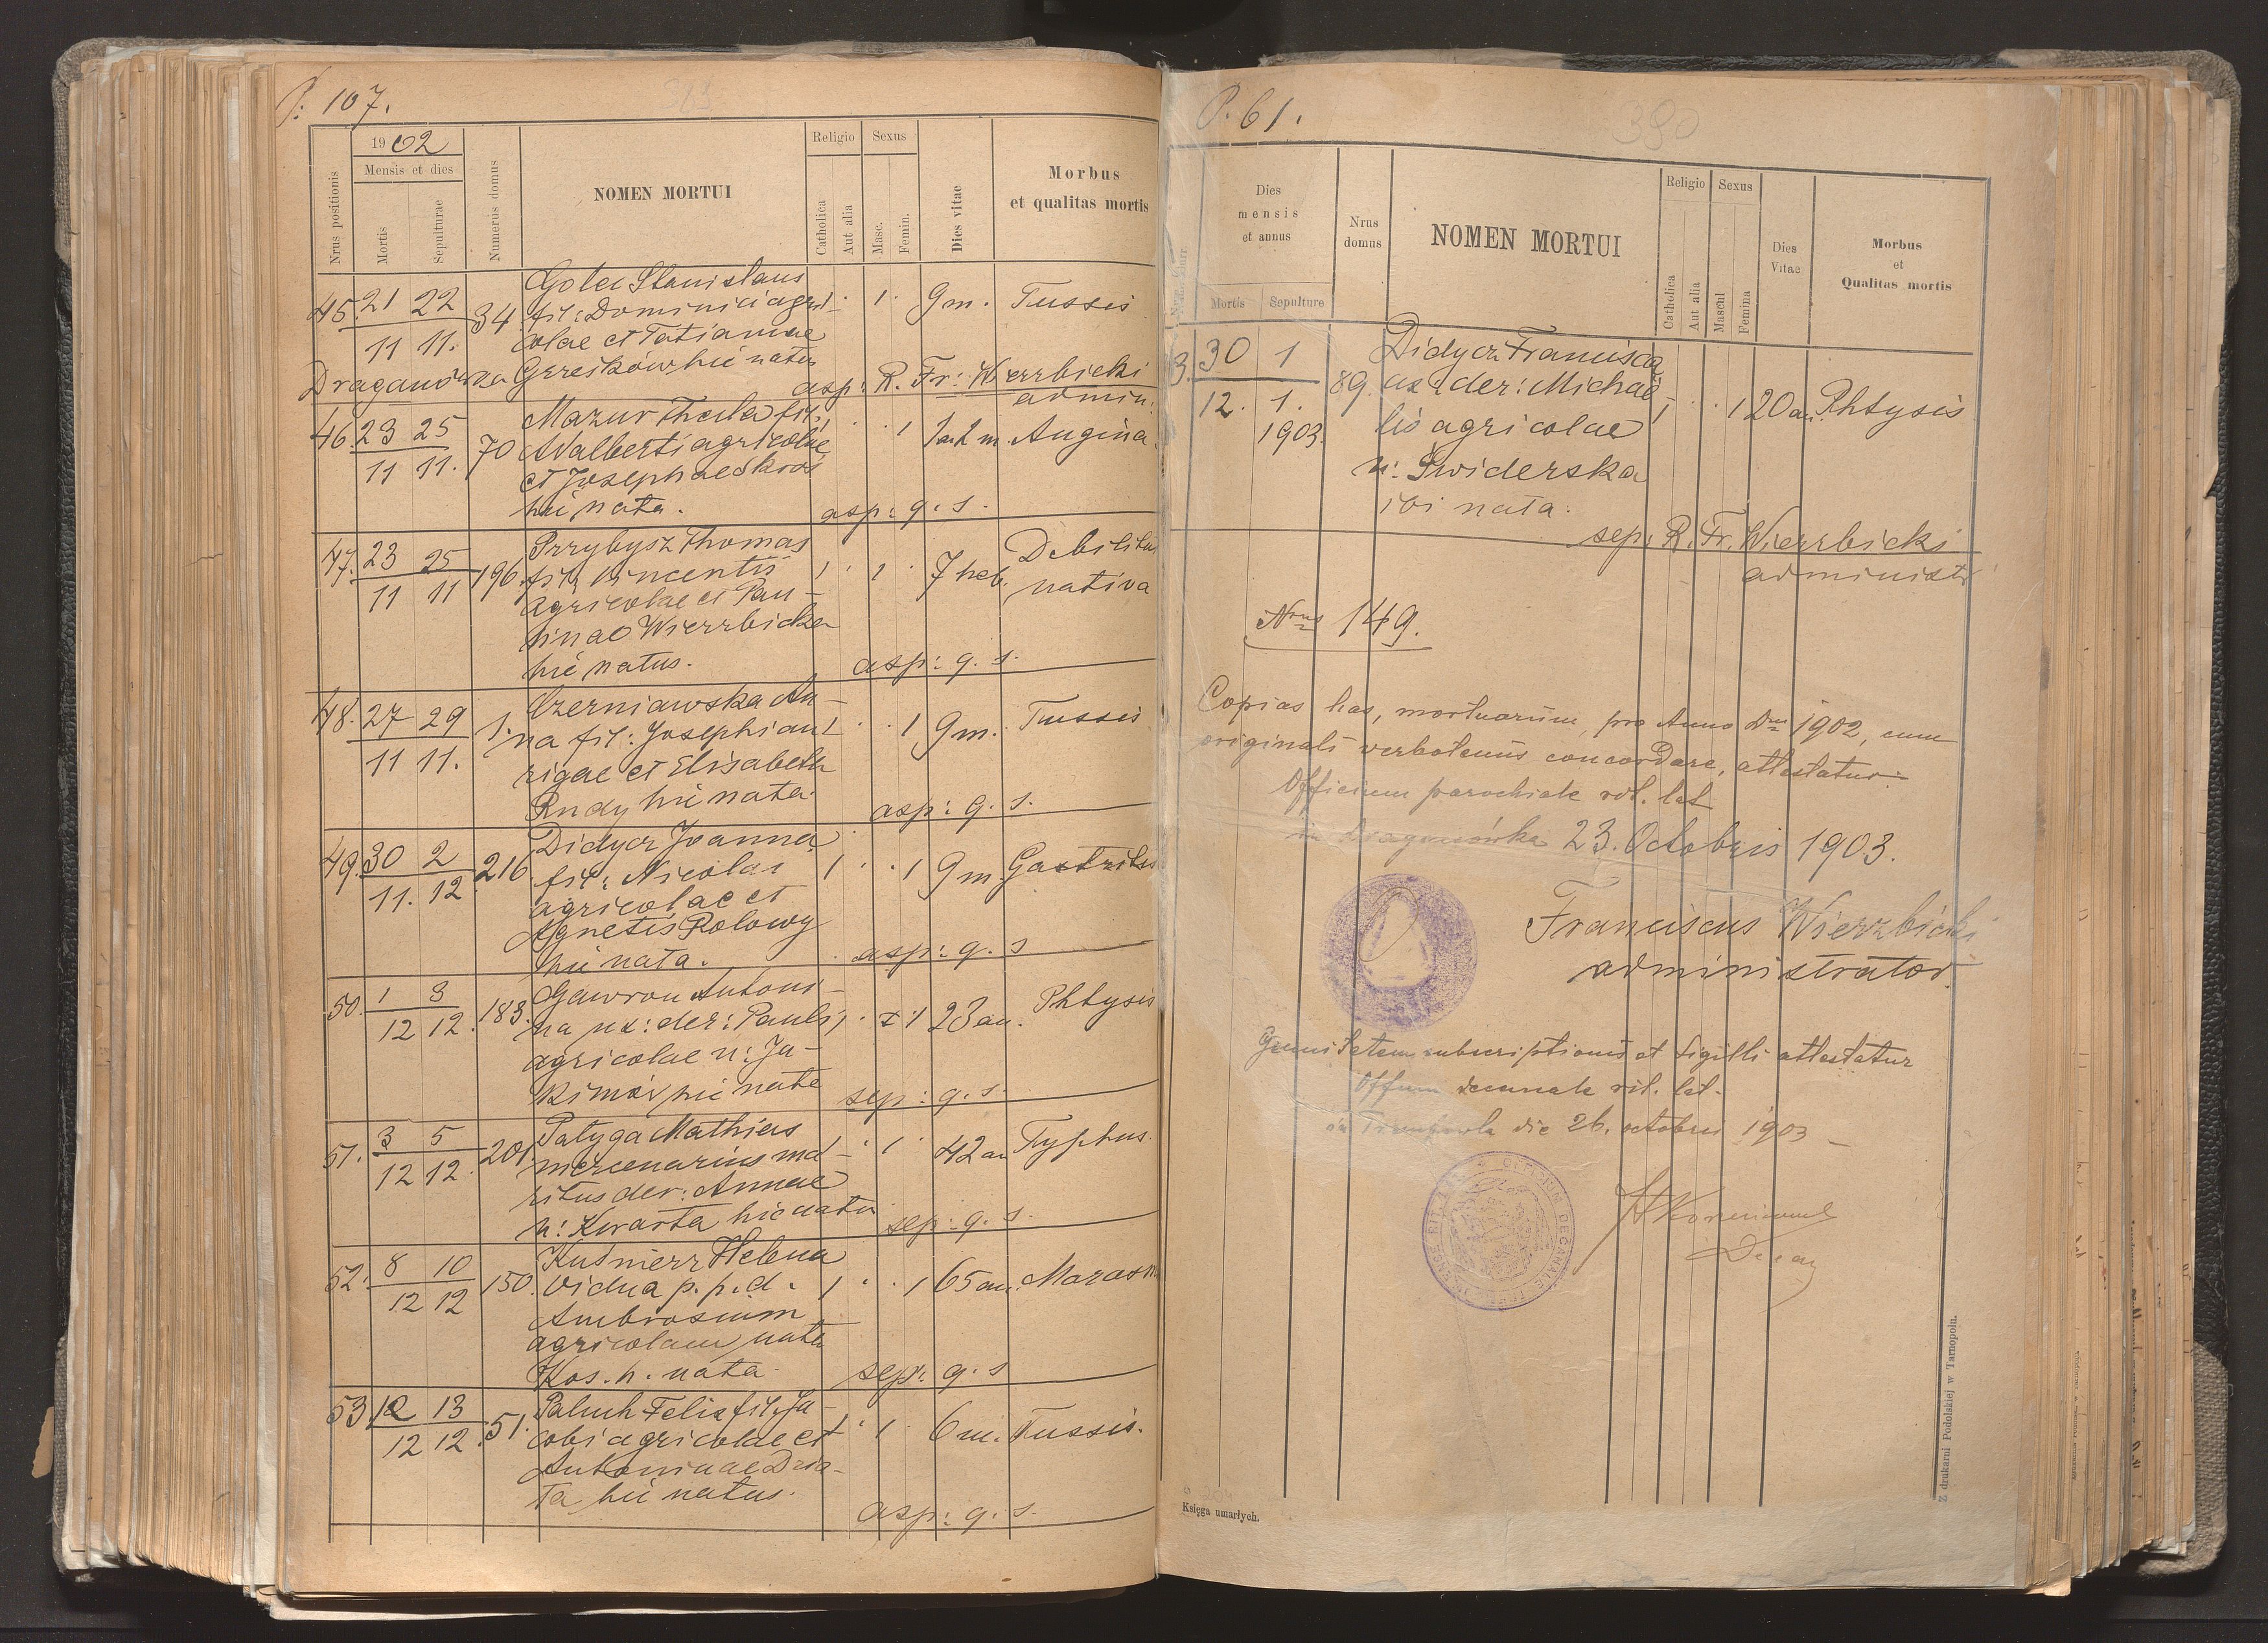 P. 107.
1902
Nrus positionis
Mensis et dies
Mortis
Sepulturae
Numerus domus
NOMEN MORTUI
Religio
Catholica
Aut alia
Sexus
Masc.
Femin.
Dies vitae
Morbus
et qualitas mortis
45. 21 22 34 Golec Stanislaus 1 1 9 m. Tussis
11 11. fil: Dominici agri-
colae et Tatianae
Greskow hic natus
Draganówka asp: R. Fr: Wierzbicki
admin:
46. 23 25 70 Mazur Thecla fil: 1 1 Angina
11 11. Adalberti agricolae
et Josephae
hic nata. asp: q. s.
47. 23 25 196. Przybysz Thomas 1 1 7 heb. Debilitas
11 11 fil: Vincentii nativa
agricolae et Pau-
linae Wierzbicka
hic natus. asp: q. s.
48. 27 29 1. Czerniawska An- 1 1 9 m. Tussis
11 11. na fil: Josephi au-
rigae et Elisabeth
Rudy hic nata. asp: q. s.
49. 30 2 216 Didycz Joanna 1 1 9 m. Gastritis
11. 12 fil: Nicolai
agricolae et
Agnetis Rolowy
hic nata. asp: q. s
50. 1 3 183. Gawron Antoni- 1 1 23 an. Phtysis
12 12. na ux: der: Pauli
agricolae n: Ja-
kimów hic nata sep: q. s.
51. 3 5 201. Patyga Mathias 1 1 42 an Typhus.
12 12. mercenarius ma-
ritus der: Annae
n: Kwarta hic natus sep: q. s.
52. 8 10 150. Kusmierz Helena 1 1 65 an. Marasm
12 12 vidua p. p. d.
Ambrosium
agricolam nata
Kos. h. nata. sep: q. s
53 12 13 51. Paluch Felix fil: Ja- 1 1 6 m. Tussis.
12 12. cobi agricolae et
Antoninae Dzia-
ta hic natus.
asp: q. s.
P. 61.
390
Dies
mensis
et annus
Mortis
Sepulture
Nrus
domus
NOMEN MORTUI
Religio
Catholica
Aut alia
Sexus
Mascul
Femina
Dies
Vitae
Morbus
et
Qualitas mortis
3. 30 1 89. Didycz Francisca 1 1 20 an. Phtysis
12. 1. ux: der: Michae-
1903. lis agricolae
n: Swiderska
ibi nata.
sep: R. Fr. Wierzbicki
administr
Nrus 149.
Copias has, mortuorum, pro Anno Dni 1902, cum
originali verbotenus concordare, attestatur:
Officium parochiale rit. lat
in Draganówka 23. Octobris 1903.
Franciscus Wierzbicki
administrator.
subscriptionis et sigilli attestatur
Offium decanale rit. lat.
in Trembowla die 26. octobris 1903
Decan
OFFICIUM DECANALE
Księga umarłych.
Z drukarni Podolskiej w Tarnopolu.